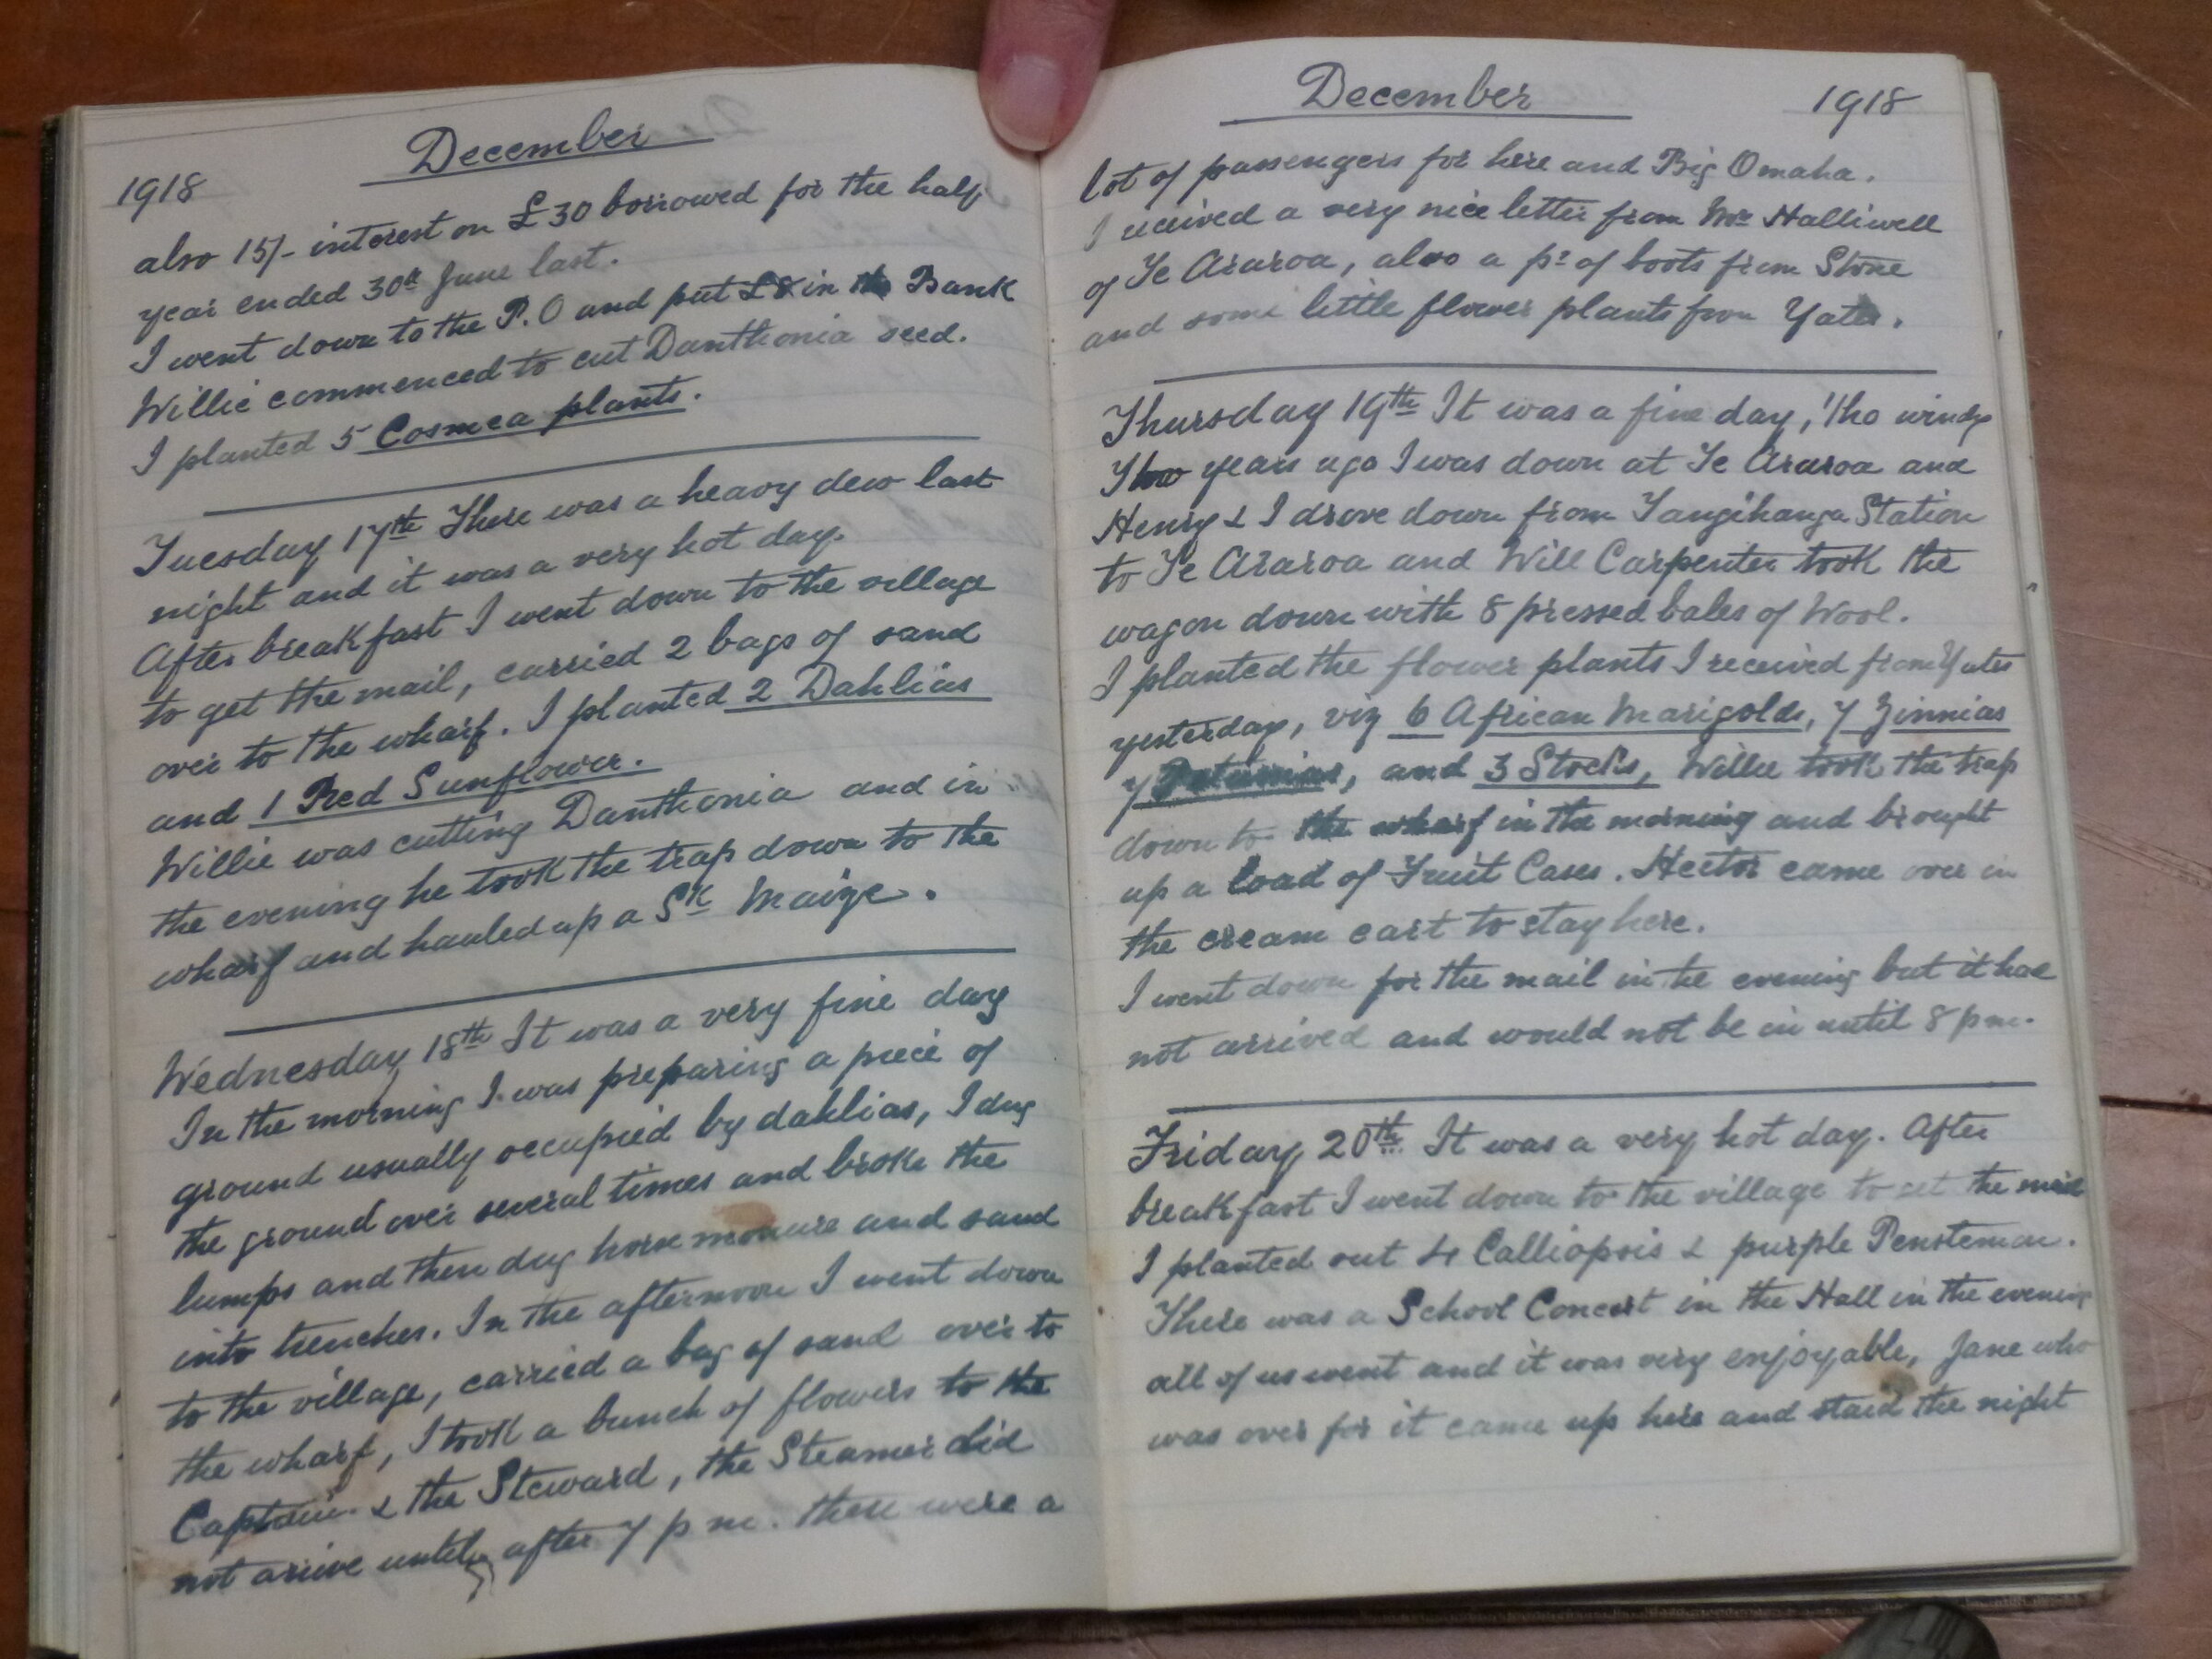 December
1918
also 15/- interest on £30 borrowed for the half
year ended 30th June last.
I went down to the P.O and put £8 in the Bank
Willie commenced to cut Danthonia seed.
I planted 5 Cosmea plants.
Tuesday 17th There was a heavy dew last
night and it was a very hot day.
After breakfast I went down to the village
to get the mail, carried 2 bags of sand
over to the wharf. I planted 2 Dahlias
and 1 Red Sunflower.
Willie was cutting Danthonia and in
the evening he took the trap down to the
wharf and hauled up a Sk Maize.
Wednesday 18th It was a very fine day
In the morning I was preparing a piece of
ground usually occupied by dahlias, I dug
the ground over several times and broke the
lumps and then dug horse manure and sand
into trenches. In the afternoon I went down
to the village, carried a bag of sand over to
the wharf, I took a bunch of flowers to the
Captain & the Steward, the Steamer did
not arive until after 7 p m. there were a
December 1918
lot of passengers for here and Big Omaha.
I received a very nice letter from Mr Halliwell
of Te Araroa, also a pr of boots from Stone
and some little flower plants from Yates.
Thursday 19th It was a fine day, 'tho windy
Two years ago I was down at Te Araroa and
Henry & I drove down from Tangihanga Station
to Te Araroa and Will Carpenter took the
wagon down with 8 pressed bales of Wool.
I planted the flower plants I received from Yates
yesterday, viz 6 African Marigolds, 7 Zinnias
7 Petunias, and 3 Stocks, Willie took the trap
down to the wharf in the morning and brought
up a load of Fruit Cases. Hector came over in
the cream cart to stay here.
I went down for the mail in the evening but it had
not arrived and would not be in until 8 p m.
Friday 20th It was a very hot day. After
breakfast I went down to the village to get the mail
I planted out 4 Calliopsis & purple Penstemon.
There was a School Concert in the Hall in the evening
all of us went and it was very enjoyable, Jane who
was over for it came up here and staid the night